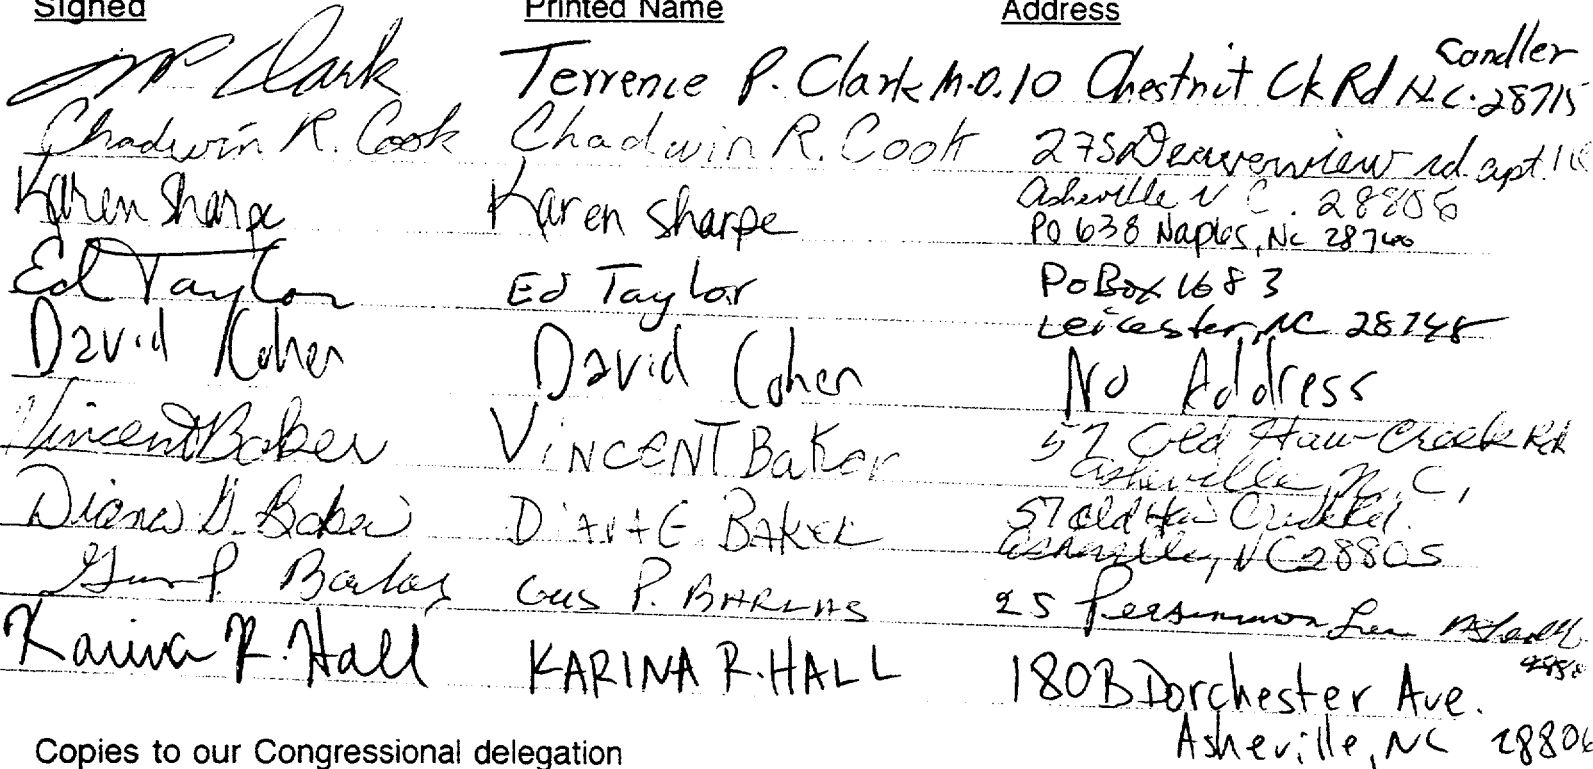 Signed Printed Name Address
Clark Terrence P. Clark M.D. 10 Chestnut Ck Rd Candler N.C. 28715
Chadwin R. Cook Chadwin R. Cook 275 Deaverview rd apt.
Asheville N C. 28806
Karen Sharpe Karen Sharpe PO 638 Naples, NC 28760
Ed Taylor Ed Taylor PO Box 1683
Leicester, NC 28748
David Cohen David Cohen No Address
Vincent Baker VINCENT Baker 57 Old Haw Creek Rd
Asheville, N.C,
Diane D. Baker DIANE BAKER 57 Old Haw Creek Rd.
Asheville, NC 28805
Gus P. Barlas Gus P. BARLAS 25 Persimmon Asheville
Karina R. Hall KARINA R. HALL 180B Dorchester Ave.
Asheville, NC 28806
Copies to our Congressional delegation